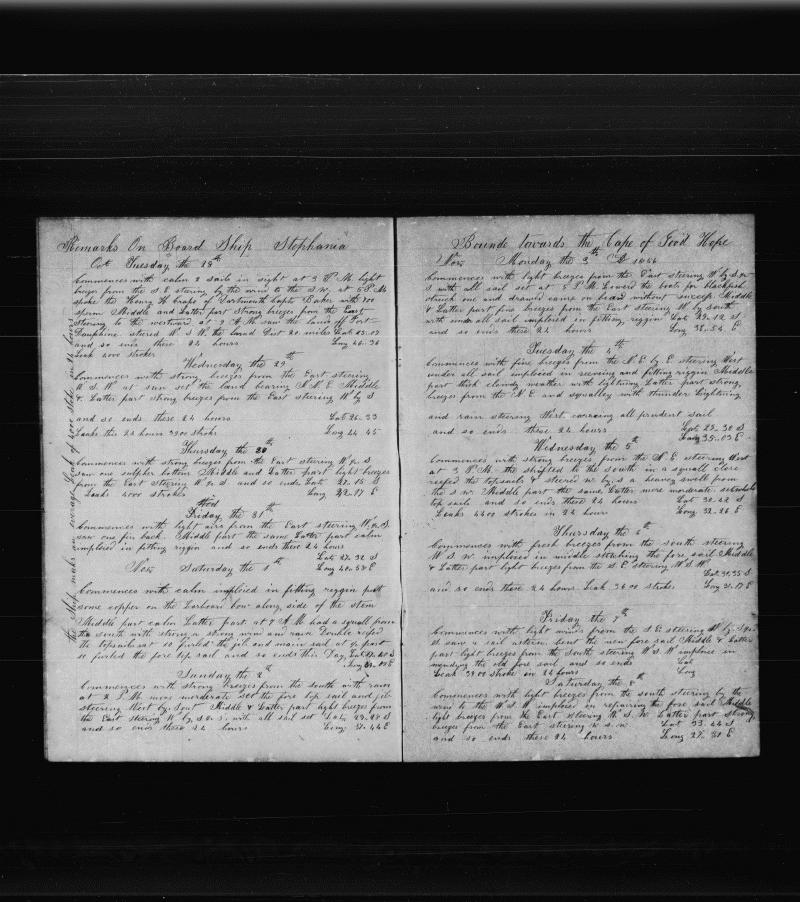 Remarks On Board Ship Stephania
Oct Tuesday the 28th
Commences with calm 2 sails in sight at 3 P.M. light
breezes from the S E stering by the wind to the S.W. at 5 P.M.
spoke the Henry H Crapo of Dartmouth Capt Baker with 700
sperm Middle and Latter part strong breezes from the East
Stering to the westward at 7 A M saw the land off Fort
Dauphine stered W S W the land Dist 20 miles Lat
and so ends these 24 hours Long 46.
Leak 4000 strokes
Wednesday the 29th
Commences with strong breezes from the East steering
W.S.W. at sun set the land bearing N.N.E. Middle
& Latter part strong breezes from the East steering W by S
and so ends these 24 hours Lat 26.33
Leaks this 24 hours 3900 strokes Long 44 45
Thursday the 30th
Commences with strong breezes from the East steering W by S
saw one sulpher bottom Middle and Latter part light breezes
from the East steering W by S and so ends Lat 27.15 S
Leaks 4000 strokes Long 42.17 E
Friday the 31th
Commences with light airs from the East steering W by S
saw one fin back. Middle part the same Latter part calm
imploied in fitting riggin and so ends these 24 hours
Lat 27.32 S
Nov Saturday the 1th Long 40.54 E
Commences with calm imploied in fitting riggin put
some copper on the Larboard bow along side of the stem
Middle part calm Latter part at 7 A M had a squall from
the south with strong wind and rain Double refed
the topsails set 10 furled the jib and main sail at 9 part
10 furled the fore top sail and so ends this Day Lat
Long
Sunday the 2th
Commences with strong breezes from the south with rain
at 2 P M more moderate set the fore top sail and jib
steering West by Sout Middle & Latter part light breezes from
the East steering W by S & S with all sail set Lat
and so ends these 24 hours Long 37.44 E
the Ship makes an average Leak of 4000 stokes in 24 hours
Bounde towards the Cape of Good Hope
Nov Monday the 3th
Commences with light breezes from the East steering W by S &
S with all sail set at 5 P.M. Lowerd the boats for blackfish
struck one and drawed came on board without sucess Middle
& Latter part fine breezes from the East steering W by south
with under all sail imploied in fitting riggin Lat 29.12 S
and so ends these 24 hours Long 38.54 E
Tuesday the 4th
Commences with fine breezes from the N.E by E steering West
under all sail imploied in serveing and fitting riggin Middle
part thick cloudy weather with lightning Latter part strong
breezes from the N E and squalley with thunder Lightning
and rain steering West carraing all prudent sail
and so ends these 24 hours Lat 29.30 S
Long 35.03 E
Wednesday the 5th
Commences with strong breezes from the N.E steering West
at 3 P.M. the shifted to the south in a squall close
reefed the topsails & steered w by s a heavey swell from
the S W. Middle part the same Latter more moderate set whole
top sails and so ends these 24 hours Lat 30.42 S
Leaks 4400 strokes in 24 hours Long 32.26 E
Thursday the 6th
Commences with fresh breezes from the south steering
W.S.W. imploied in middle stitching the fore sail Middle
& Latter part light breezes from the S.E steering W.S.W
Lat 31.35 S
and so ends these 24 hours Leak 3600 stroks Long 31.17 E
Friday the 7th
Commences with light winds from the S.E. steering W by S
saw a sail astern bent the new fore sail Middle & Latter
part light breezes from the South steering W S W imploiee in
mending the old fore sail and so ends Lat
Leak 3900 stroke in 24 hours Long
Saturday the 8th
Commences with light breezes from the south steering by the
wind to the W S W imploied in repairing the fore sail Middle
light breezes from the East steering W.S.W. Latter part strong
breezes from the East steering w.s.w Lat 33.44 S
and so ends these 24 hours Long 27.31 E